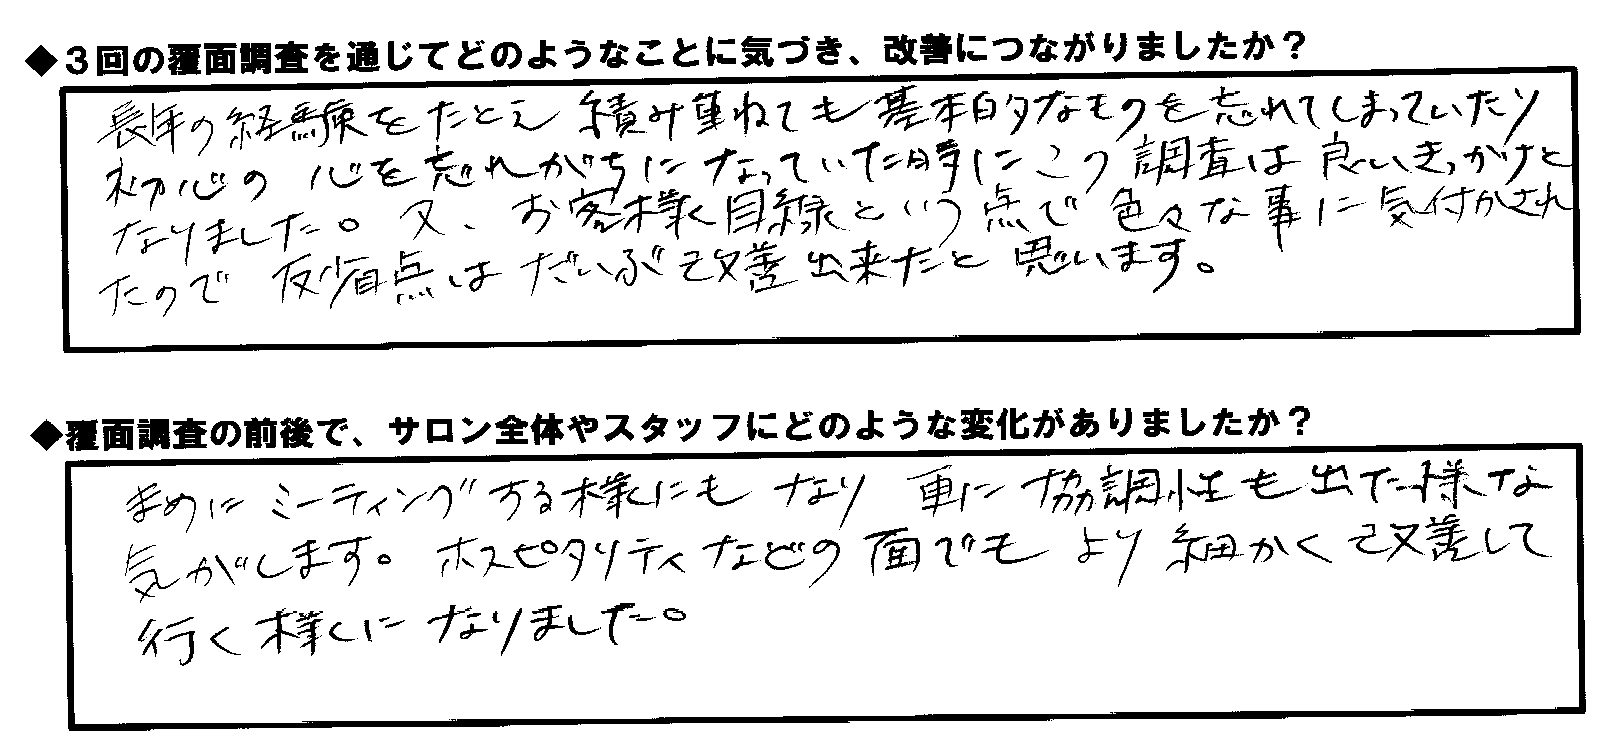 ◆3回の覆面調査を通じてどのようなことに気づき、改善につながりましたか？
長年の経験をたとえ積み重ねても基本的なものを忘れてしまっていたり
初心の心を忘れがちになっていた時にこの調査は良いきっかけと
なりました。又、お客様目線という点で色々な事に気付かされ
たので反省点はだいぶ改善出来たと思います。
◆覆面調査の前後で、サロン全体やスタッフにどのような変化がありましたか？
まめにミーティングする様にもなり更に協調性も出た様な
気がします。ホスピタリティなどの面でもより細かく改善して
行く様になりました。